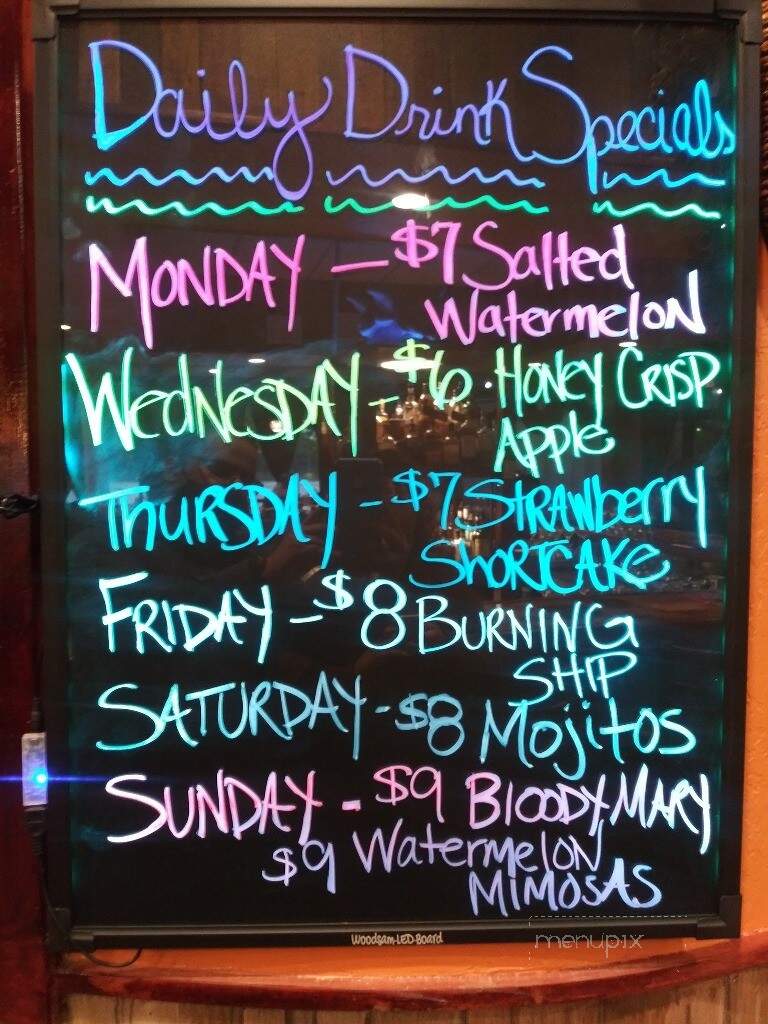 Daily Drink Specials
MONDAY - $7 Salted
Watermelon
WEDNESDAY - $6 HONEY CRISP
Apple
THURSDAY - $7 STRAWberry
SHORTCAKE
FRIDAY - $8 BURNING
SHIP
SATURDAY - $8 Mojitos
SUNDAY - $9 BLOODY MARY
$9 Watermelon
MIMOSAS
Woodsam-LED-Board
menupix